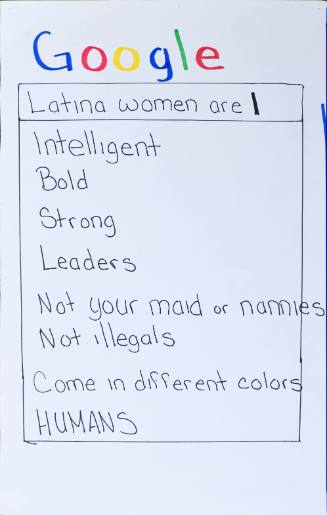 Google
Latina women are
Intelligent
Bold
Strong
Leaders
Not your maid or nannies
Not illegals
Come in different colors
HUMANS